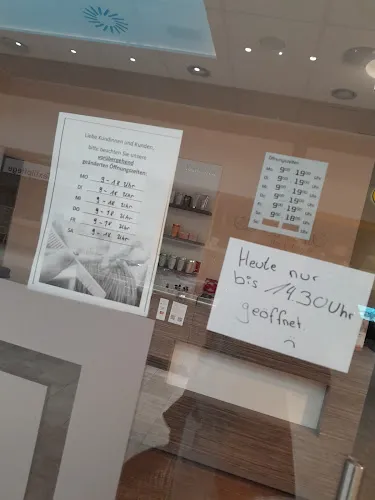 Liebe Kundinnen und Kunden,
bitte beachten Sie unsere
vorübergehend
geänderten Öffnungszeiten:
MO 9 - 18 Uhr
DI 9 - 18 Uhr
MI 9 - 18 Uhr
DO 9 - 18 Uhr
FR 9 - 18 Uhr
SA 9 - 18 Uhr
Öffnungszeiten
Mo 9⁰⁰ 19⁰⁰ Uhr
Di 9⁰⁰ 19⁰⁰ Uhr
Mi 9⁰⁰ 19⁰⁰ Uhr
Do 9⁰⁰ 19⁰⁰ Uhr
Fr 9⁰⁰ 19⁰⁰ Uhr
Sa 9⁰⁰ 18⁰⁰ Uhr
Heute nur
bis 14.30 Uhr
geöffnet